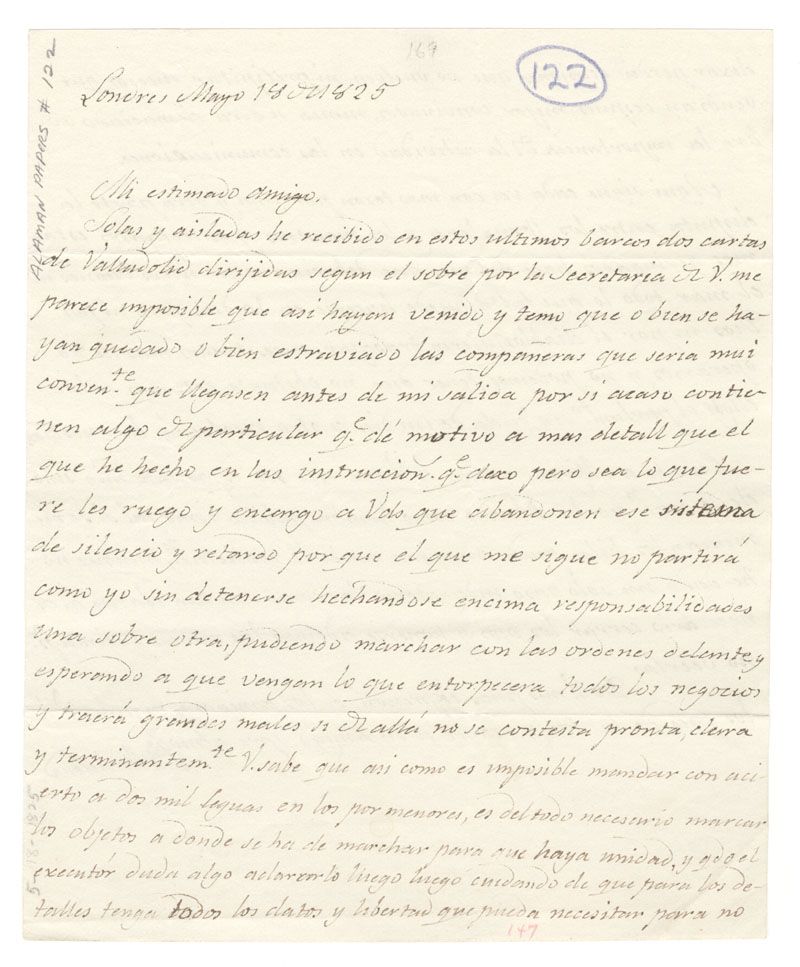 169
122
ALAMAN PAPERS # 122
Londres Mayo 18 de 1825
Mi estimado amigo.
Solas y aisladas he recibido en estos ultimos barcos dos cartas
de Valladolid dirijidas segun el sobre por la Secretaria de V. me
parece imposible que asi hayan venido y temo que o bien se ha-
yan quedado o bien estraviado las compañeras que seria mui
conven.te que llegasen antes de mi salida por si acaso contie-
nen algo de particular q.e dé motivo a mas detall que el
que he hecho en las instruccion.s q.e dexo pero sea lo que fue-
re les ruego y encargo a Vds que abandonen ese sistema
de silencio y retardo por que el que me sigue no partirá
como yo sin detenerse hechandose encima responsabilidades
una sobre otra, pudiendo marchar con las ordenes delante y
esperando a que vengan lo que entorpecera todos los negocios
y traerá grandes males si de allá no se contesta pronta, clara
y terminantem.te V. sabe que asi como es imposible mandar con aci-
erto a dos mil leguas en los por menores, es del todo necesario marcar
los objetos a donde se ha de marchar para que haya unidad, y qdo el
executór duda algo aclararlo luego luego cuidando de que para los de-
talles tenga todos los datos y libertad que pueda necesitar para no
5-18-1825
147